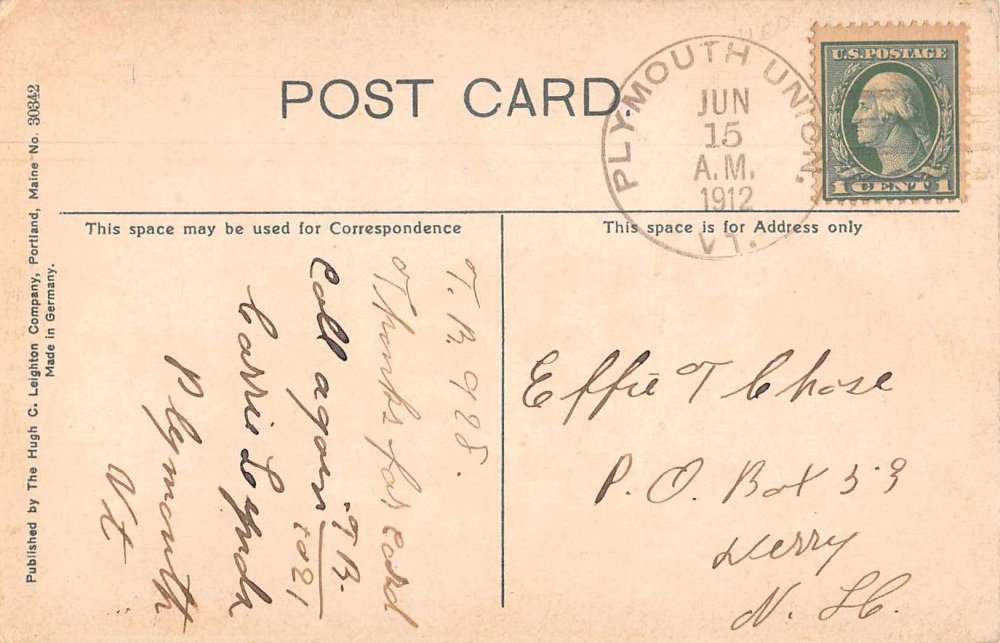 POST CARD.
PLYMOUTH UNION,
JUN
15
A.M.
1912
VT.
U.S. POSTAGE
1 CENT 1
This space may be used for Correspondence
This space is for Address only
T. B. 928.
Thanks for card
Call again
T. B.
1021
Carrie Lynds
Plymouth
Vt
Effie T Chase
P. O. Box 53
Derry
N. H.
Published by The Hugh C. Leighton Company, Portland, Maine No. 30342
Made in Germany.